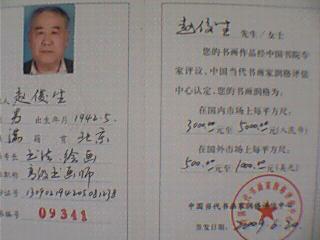 人 赵俊生
男 出生年月 1942.5.
满 籍贯 北京
书法 绘画
高级书画师
证号
书编号 09341
赵俊生 先生/女士
您的书画作品经中国书院专
家评议,中国当代书画家润格评估
中心认定,您的书画
在国内市场上每平方尺:
3000.00元至5000.00(人民币)
在国外市场上每平方尺:
500.00元至1000.00(美元)
中国当代书画家润格评估中心
2009.6.20